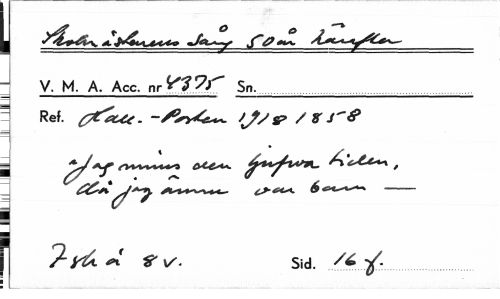 Skolmästarens sång 50 år härefter
V. M. A. Acc. nr 4375 Sn.
Ref. Hall.-Posten 1918 1858
"Jag minns den ljufva tiden,
då jag ännu var barn —
7 sh å 8 v. Sid. 16 f.